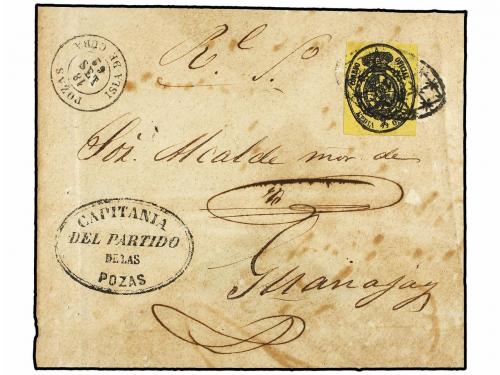 ISLA DE CUBA
18
SET
59
POZAS
R.l S.o
Sor. Alcalde mor. de
Guanajay
CAPITANIA
DEL PARTIDO
DE LAS
POZAS